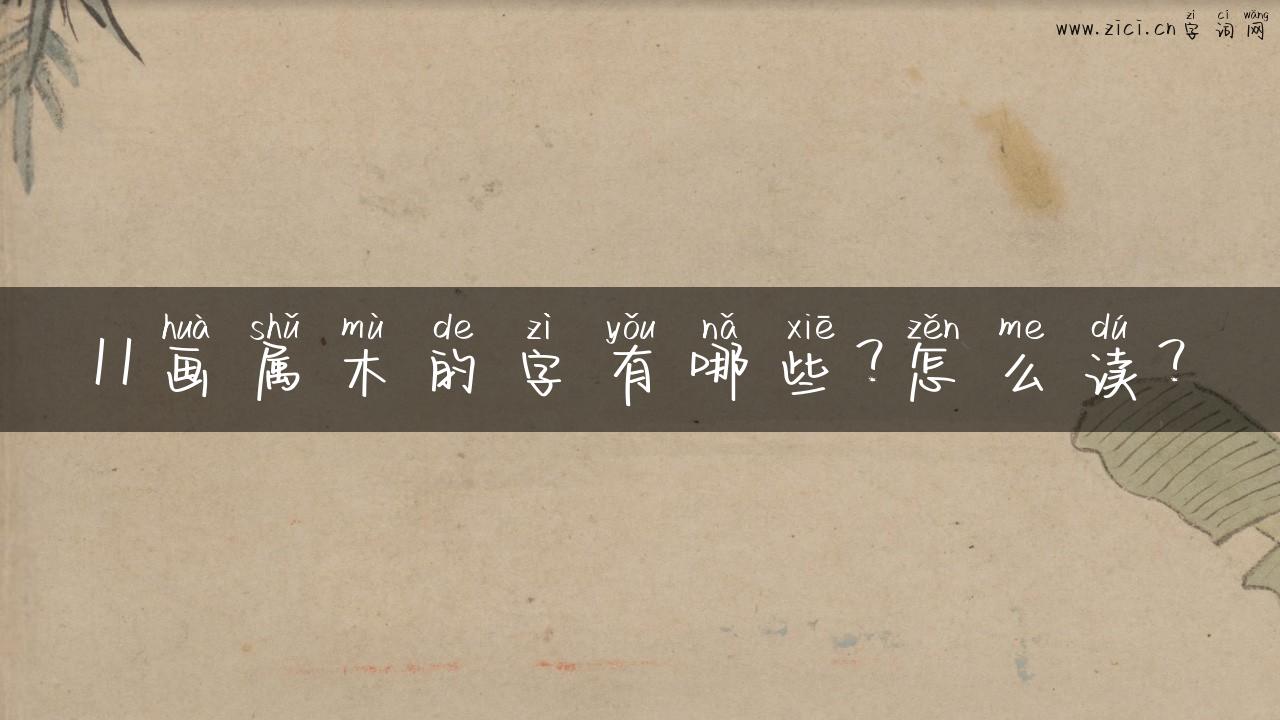 zì cí wǎng
www.zici.cn 字词网
huà shǔ mù de zì yǒu nǎ xiē zěn me dú
11画属木的字有哪些?怎么读?